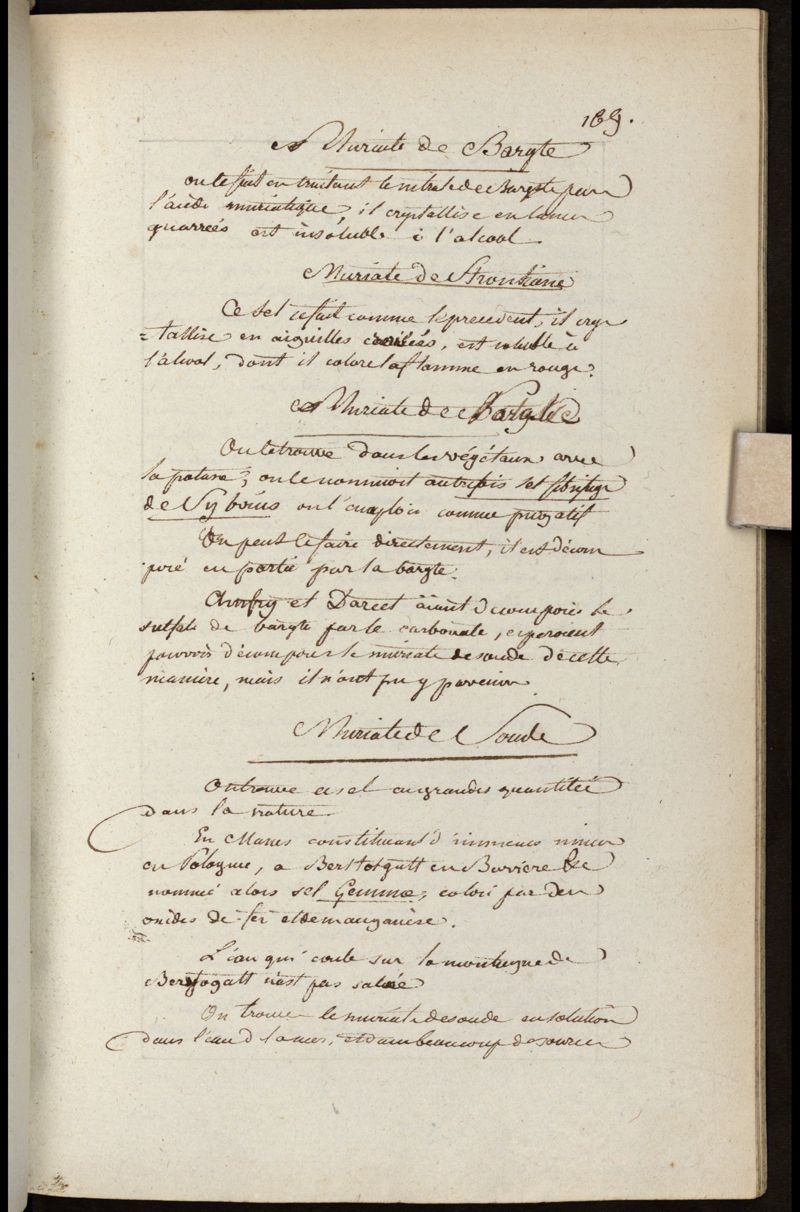 189.
Muriate de Baryte
on le fait en traitant le nitrate de Baryte par
l'acide muriatique, il crystallise en lames
quarrées est insoluble à l'alcool.
Muriate de Strontiane
Ce sel se fait comme le precedent, il crys
=tallise en aiguilles, est soluble à
l'alcool, dont il colore la flamme en rouge.
Muriate de
On le trouve dans les végétaux avec
la potasse, on le nommoit autrefois sel febrifuge
de Sylvius on l'emploie comme purgatif
On peut le faire directement, il est décom
posé en partie par la baryte.
Anfry et Darcet aiant decomposés le
sulfate de baryte par le carbonate, esperoient
pouvoir décomposer le muriate de soude de cette
maniere, mais ils n'ont pu y parvenir
Muriate de Soude
On trouve ce sel en grandes quantités
dans la nature.
En Masses constituant d'immenses mines
en Pologne, a en Baviere &c
nommé alors sel Gemme, coloré par des
oxides de fer et de manganèse.
L'eau qui coule sur la montagne de
n'est pas salée
On trouve le muriate de soude en solution
dans l'eau d la mer, et dans beaucoup de sources